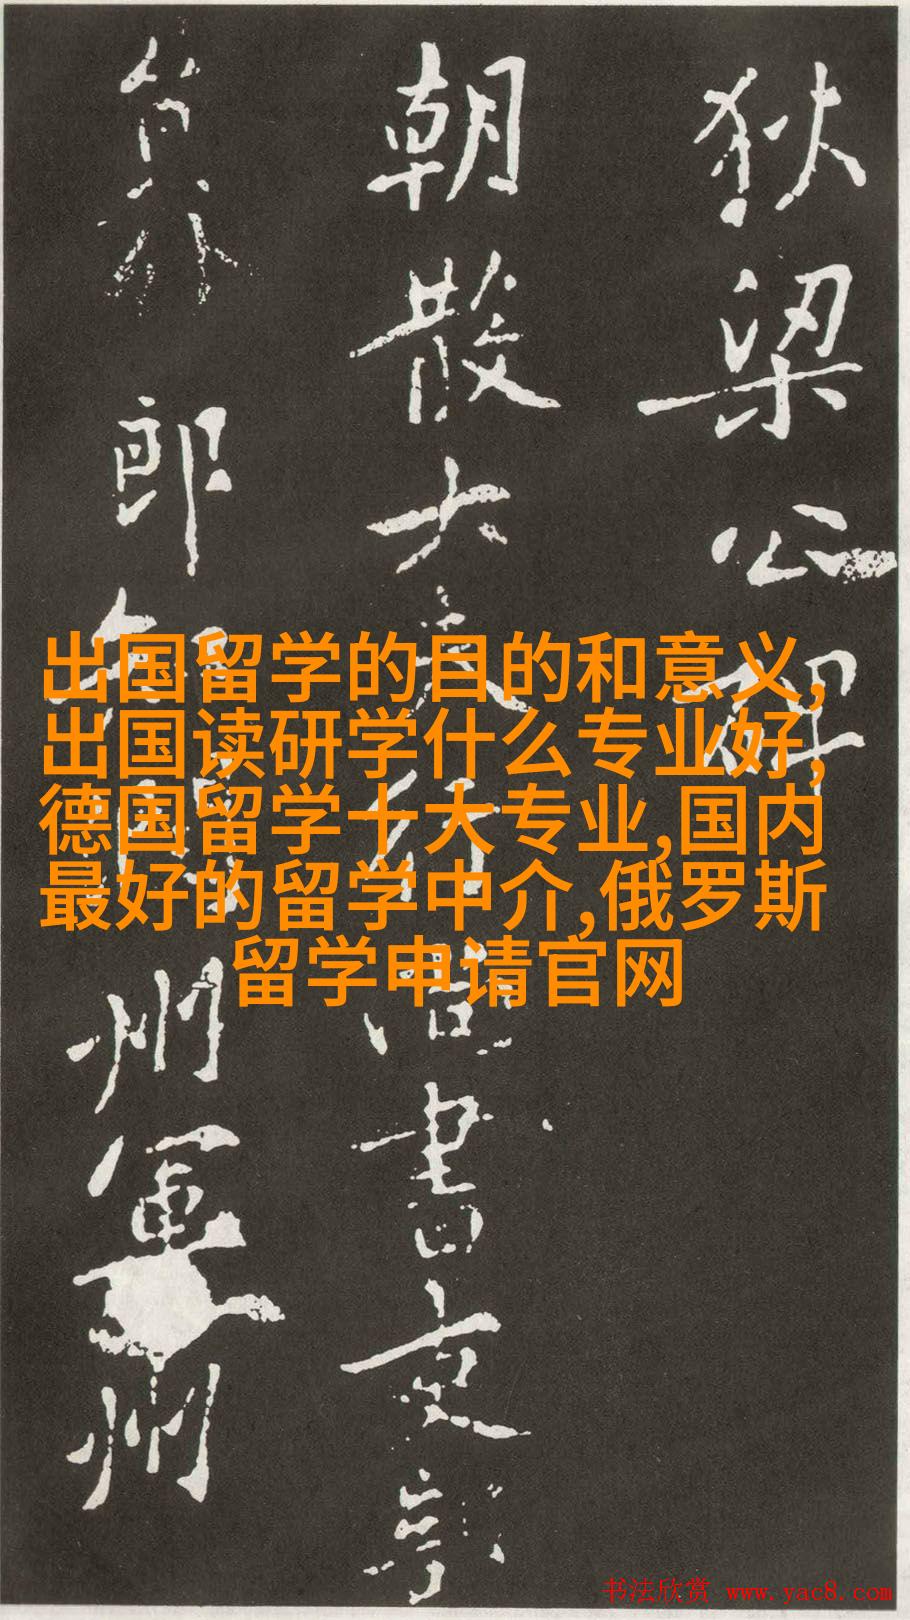 狄梁公碑
朝散大夫行尚書吏部
員外郎知州軍州
出国留学的目的和意义,
出国读研学什么专业好,
德国留学十大专业,国内
最好的留学中介,俄罗斯
留学申请官网
书法欣赏 www.yac8.com